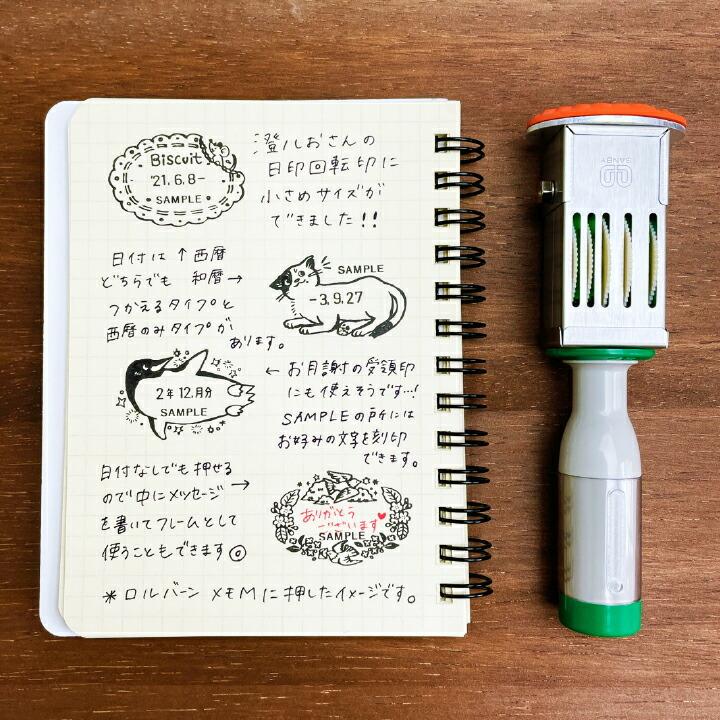 Biscuit
'21.6.8-
SAMPLE
澄ルおさんの
日印回転印に
小さめサイズが
できました!!
日付は↑西暦
どちらでも 和暦→
つかえるタイプと
西暦のみタイプが
あります。
SAMPLE
-3.9.27
2年12.月分
SAMPLE
← お月謝の受領印
にも使えそうです…!
SAMPLEの所には
お好みの文字を刻印
できます。
日付なしでも押せる
ので中にメッセージ →
を書いてフレームとして
使うこともできます◎
ありがとう
ございます
SAMPLE
*ロルバーン メモMに押したイメージです。
SANBY